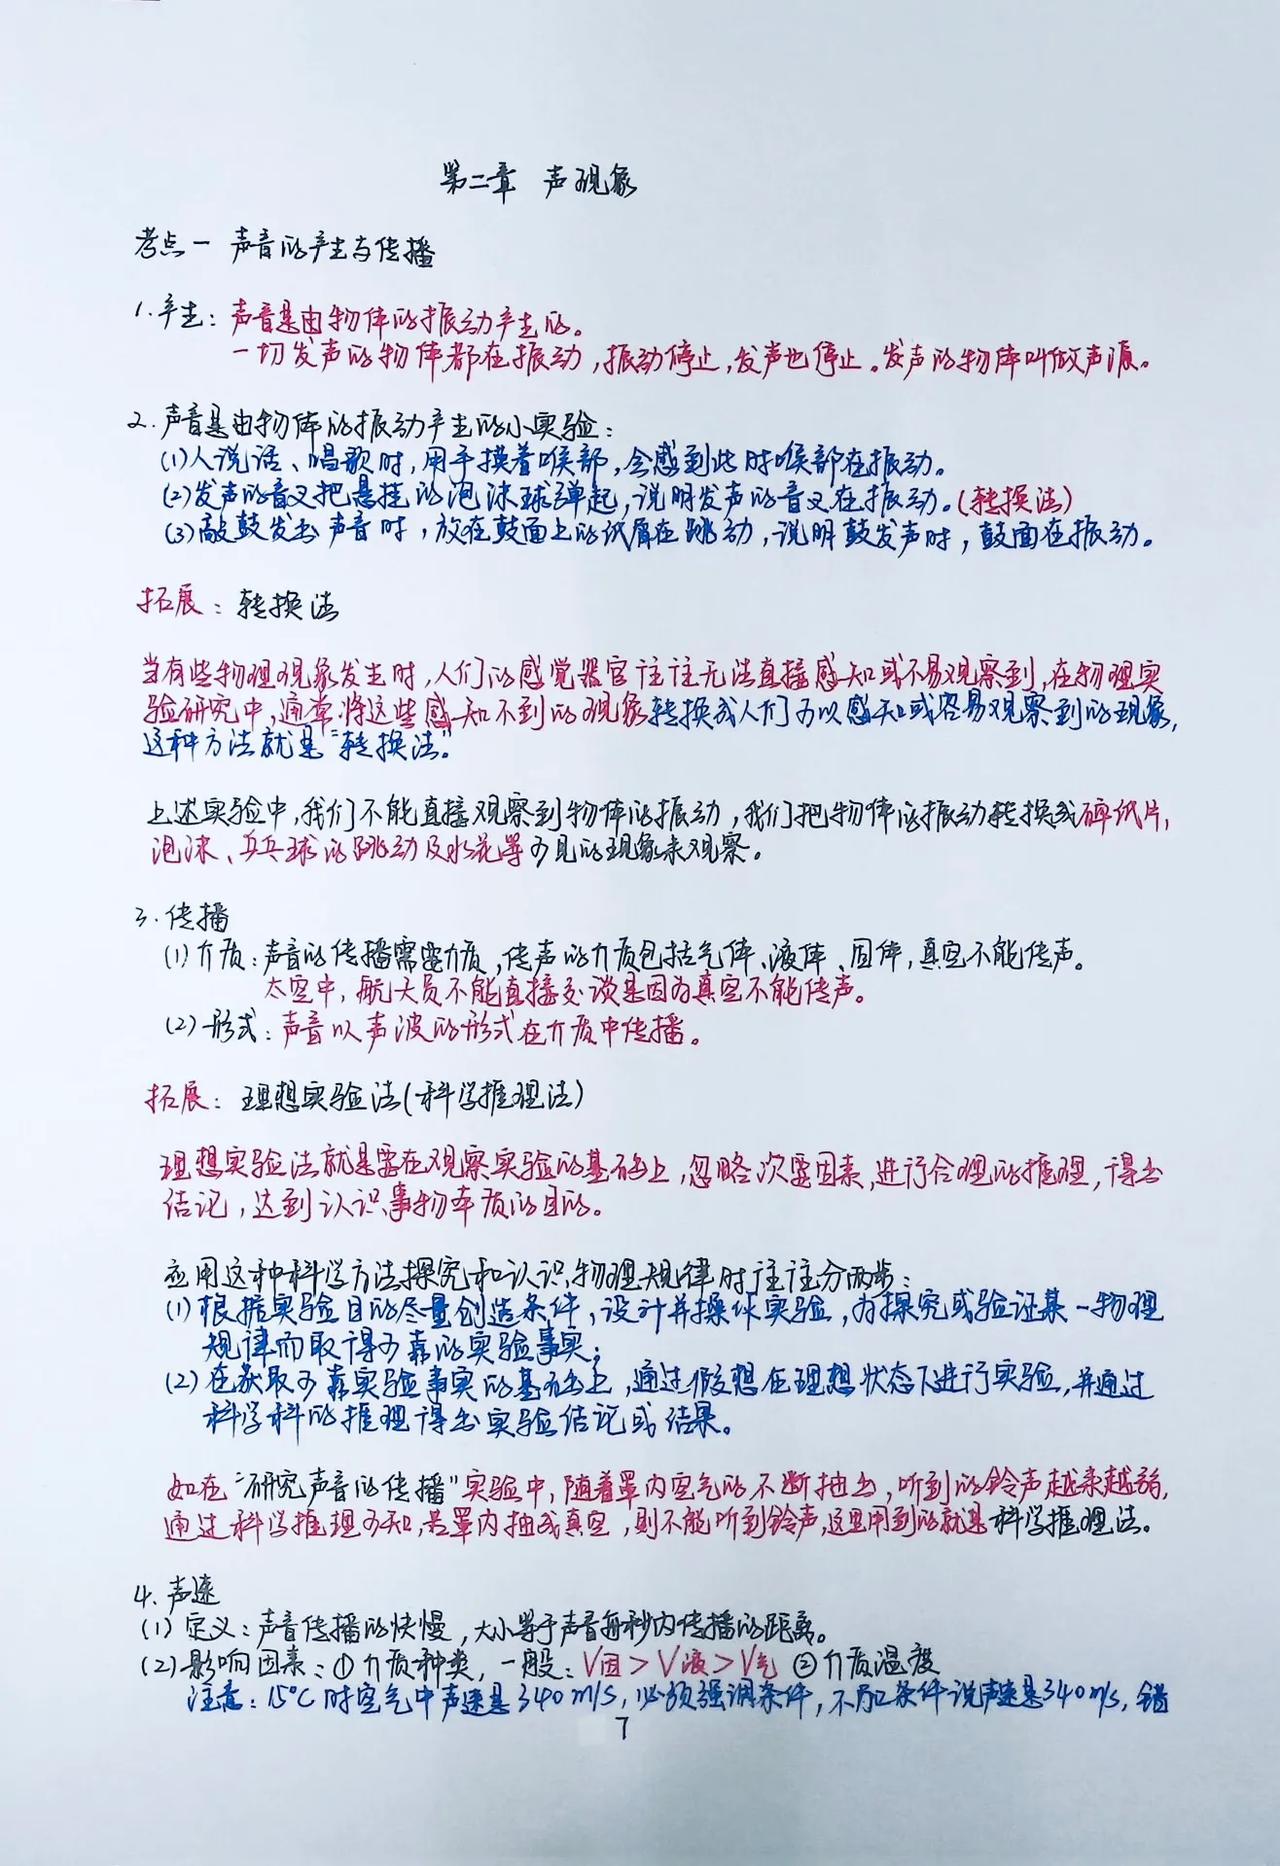 第二章 声现象
考点一 声音的产生与传播
1.产生：声音是由物体的振动产生的。
一切发声的物体都在振动，振动停止，发声也停止。发声的物体叫做声源。
2.声音是由物体的振动产生的小实验：
(1)人说话、唱歌时，用手摸着喉部，会感到此时喉部在振动。
(2)发声的音叉把悬挂的泡沫球弹起，说明发声的音叉在振动。(转换法)
(3)敲鼓发出声音时，放在鼓面上的纸屑在跳动，说明鼓发声时，鼓面在振动。
拓展：转换法
当有些物理现象发生时，人们的感觉器官往往无法直接感知或不易观察到，在物理实
验研究中，通常将这些感知不到的现象转换成人们可以感知或容易观察到的现象，
这种方法就是"转换法"。
上述实验中，我们不能直接观察到物体的振动，我们把物体的振动转换成碎纸片，
泡沫、乒乓球的跳动及水花等可见的现象来观察。
3.传播
(1)介质：声音的传播需要介质，传声的介质包括气体、液体、固体，真空不能传声。
太空中，航天员不能直接交谈是因为真空不能传声。
(2)形式：声音以声波的形式在介质中传播。
拓展：理想实验法(科学推理法)
理想实验法就是要在观察实验的基础上，忽略次要因素，进行合理的推理，得出
结论，达到认识事物本质的目的。
应用这种科学方法探究和认识物理规律时往往分两步：
(1)根据实验目的尽量创造条件，设计并操作实验，为探究或验证某一物理
规律而取得可靠的实验事实；
(2)在获取可靠实验事实的基础上，通过假想在理想状态下进行实验，并通过
科学科的推理得出实验结论或结果。
如在"研究声音的传播"实验中，随着罩内空气的不断抽出，听到的铃声越来越弱，
通过科学推理可知，若罩内抽成真空，则不能听到铃声，这里用到的就是科学推理法。
4.声速
(1)定义：声音传播的快慢，大小等于声音每秒内传播的距离。
(2)影响因素：①介质种类，一般：V固>V液>V气 ②介质温度
注意：15℃时空气中声速是340m/s，必须强调条件，不加条件说声速是340m/s，错
7